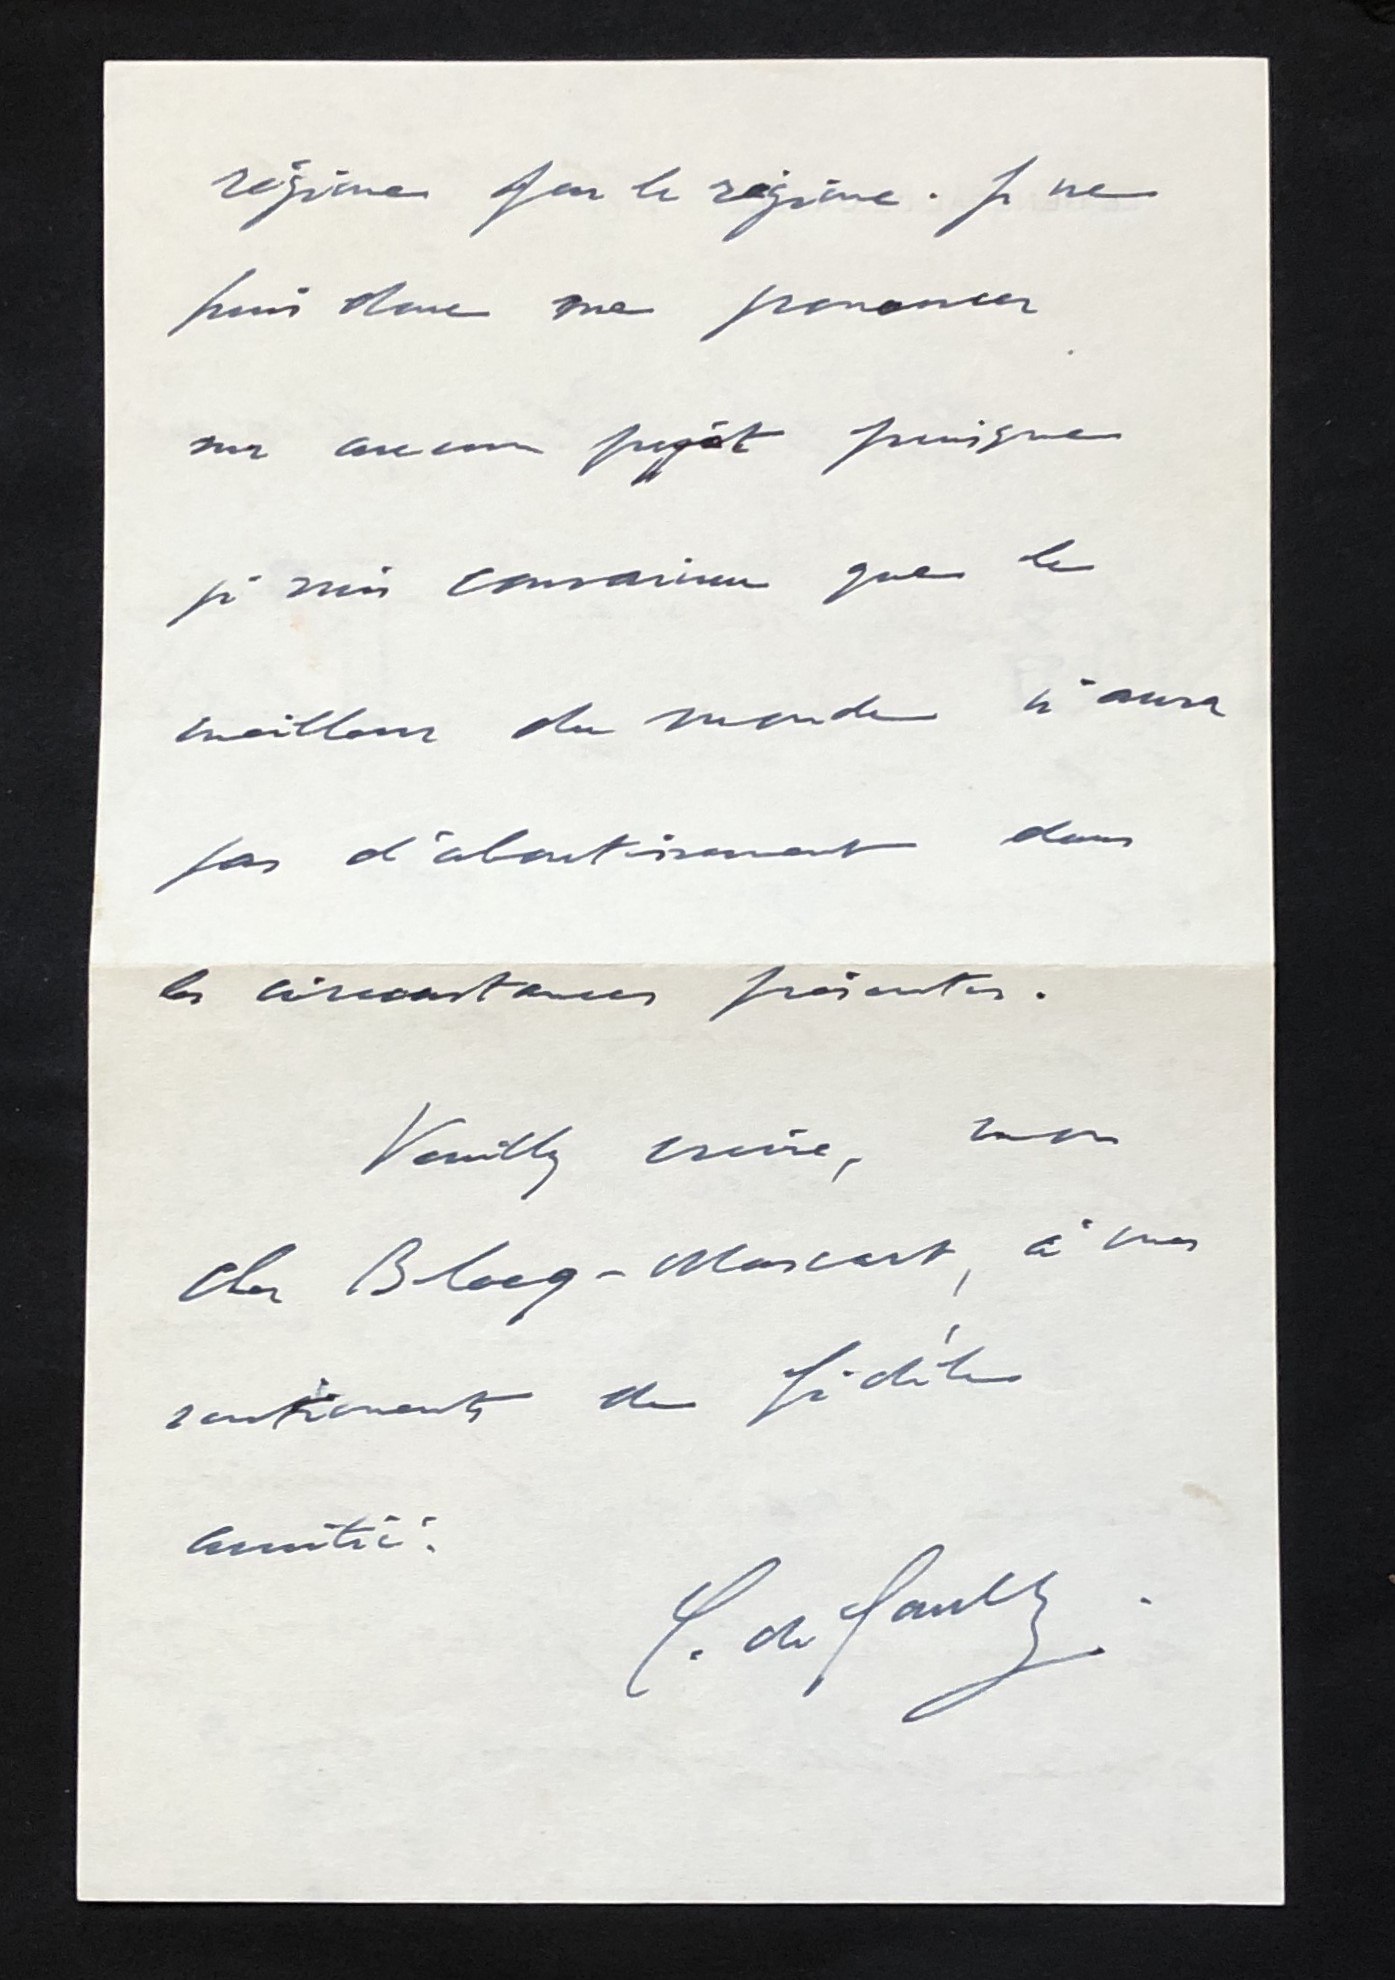 régime par le régime. Je ne
puis donc me prononcer
sur aucun projet puisque
je suis convaincu que le
meilleur du monde n'aura
pas d'aboutissement dans
les circonstances présentes.
Veuillez croire, mon
cher Blocq-Mascart, à mes
sentiments de fidèle
amitié.
C. de Gaulle.